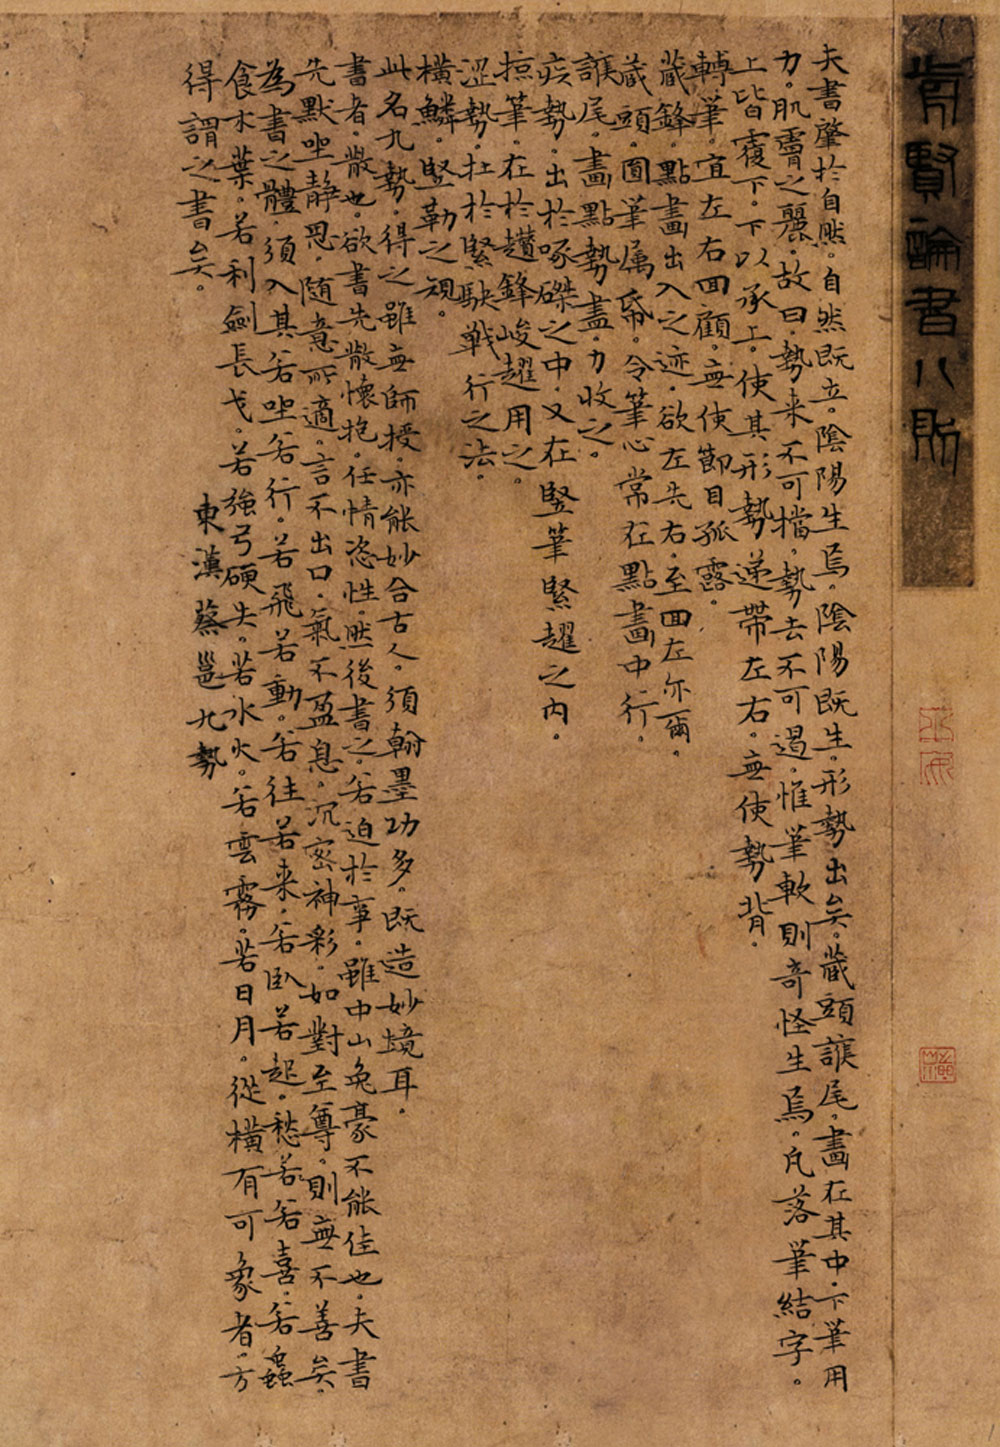 前賢論書八則
夫書肇於自然。自然既立。陰陽生焉。陰陽既生。形勢出矣。藏頭護尾。畫在其中。下筆用
力。肌膚之麗。故曰。勢来不可擋。勢去不可遏。惟筆軟則奇怪生焉。凡落筆結字。
上皆覆下。下以承上。使其形勢遞帶左右。無使勢背。
轉筆。宜左右回顧。無使節目孤露。
藏鋒。點畫出入之迹。欲左先右。至回左亦爾。
藏頭。圓筆属紙。令筆心常在點畫中行。
護尾。畫點勢盡。力收之。
疾勢。出於啄磔之中。又在竪筆緊趯之内。
掠筆。在於趲鋒峻趯用之。
澀勢。在於緊駃戰行之法。
横鱗。竪勒之規。
此名九勢。得之雖無師授。亦能妙合古人。須翰墨功多。既造妙境耳。
書者。散也。欲書先散懷抱。任情恣性。然後書之。若迫於事。雖中山兔豪不能佳也。夫書
先默坐静思。随意所適。言不出口。氣不盈息。沉密神彩。如對至尊。則無不善矣。
為書之體。須入其若坐若行。若飛若動。若往若来。若臥若起。愁若若喜。若蟲
食木葉。若利劍長戈。若強弓硬矢。若水火。若雲霧。若日月。從横有可象者。方
得謂之書矣。
東漢蔡邕九勢